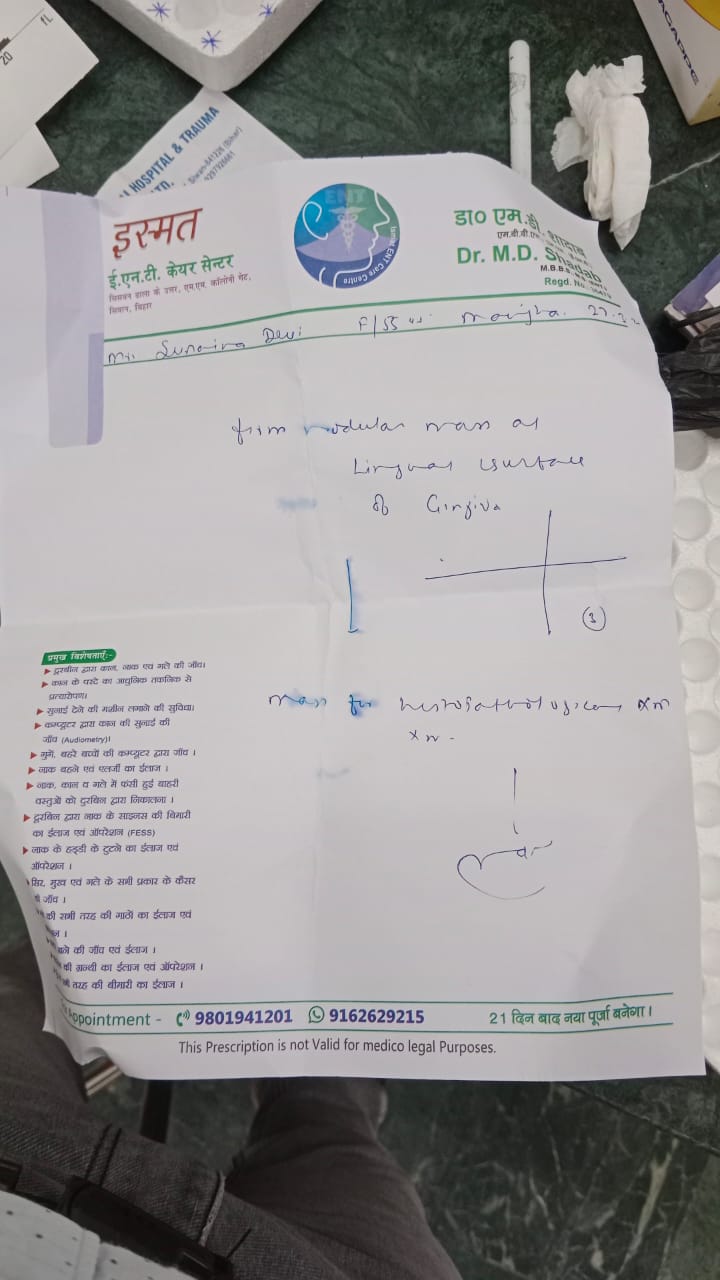 20
fL
AGAPPE
HOSPITAL & TRAUMA
इस्मत
ई.एन.टी. केयर सेन्टर
सिवान, बिहार
ENT
Ismat ENT Care Centre
डा० एम.डी. शादाब
Dr. M.D. Shadab
M.B.B.S.
Regd. No.
Sunaina Devi F/55
firm nodular mass at
Lingual surface
of Gingiva
3
mass for histopathological xn
xn -
प्रमुख विशेषताएं:-
दूरबीन द्वारा कान, नाक एवं गले की जाँच।
कान के परदे का आधुनिक तकनिक से
प्रत्यारोपण।
सुनाई देने की मशीन लगाने की सुविधा।
कम्प्यूटर द्वारा कान की सुनाई की
जाँच (Audiometry)।
गुगें, बहरे बच्चों की कम्प्यूटर द्वारा जाँच ।
नाक बहने एवं एलर्जी का ईलाज ।
नाक, कान व गले में फंसी हुई बाहरी
वस्तुओं को दुरबिन द्वारा निकालना ।
दूरबिन द्वारा नाक के साइनस की बिमारी
का ईलाज एवं ऑपरेशन (FESS)
नाक के हड्डी के टुटने का ईलाज एवं
ऑपरेशन ।
सिर, मुख एवं गले के सभी प्रकार के कैंसर
जाँच ।
की सभी तरह की गाठों का ईलाज एवं
की जाँच एवं ईलाज ।
की ग्रन्थी का ईलाज एवं ऑपरेशन ।
तरह की बीमारी का ईलाज ।
Appointment - 9801941201 9162629215 21 दिन बाद नया पूर्जा बनेगा ।
This Prescription is not Valid for medico legal Purposes.